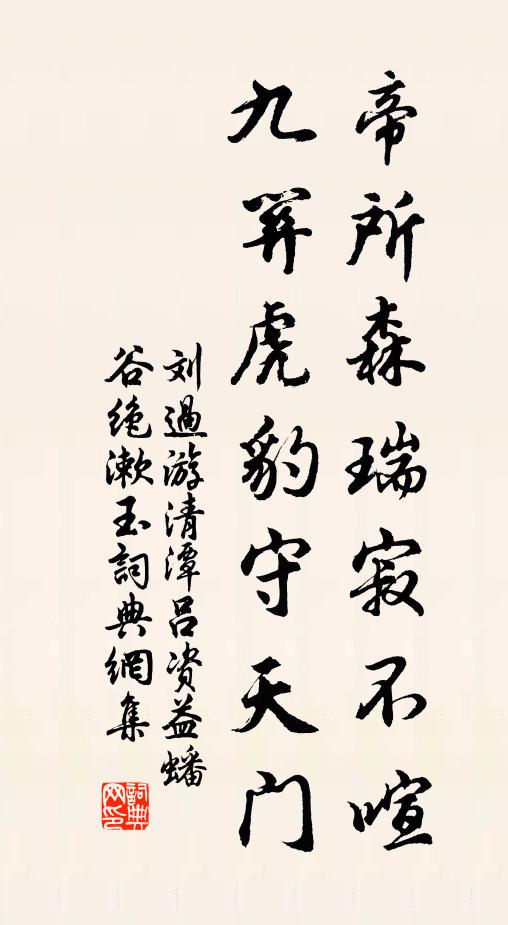 帝所森瑞寂不喧
九关虎豹守天门
刘過游清潭吕资益蟠
谷绝漱玉詞典網集
詞典
网印